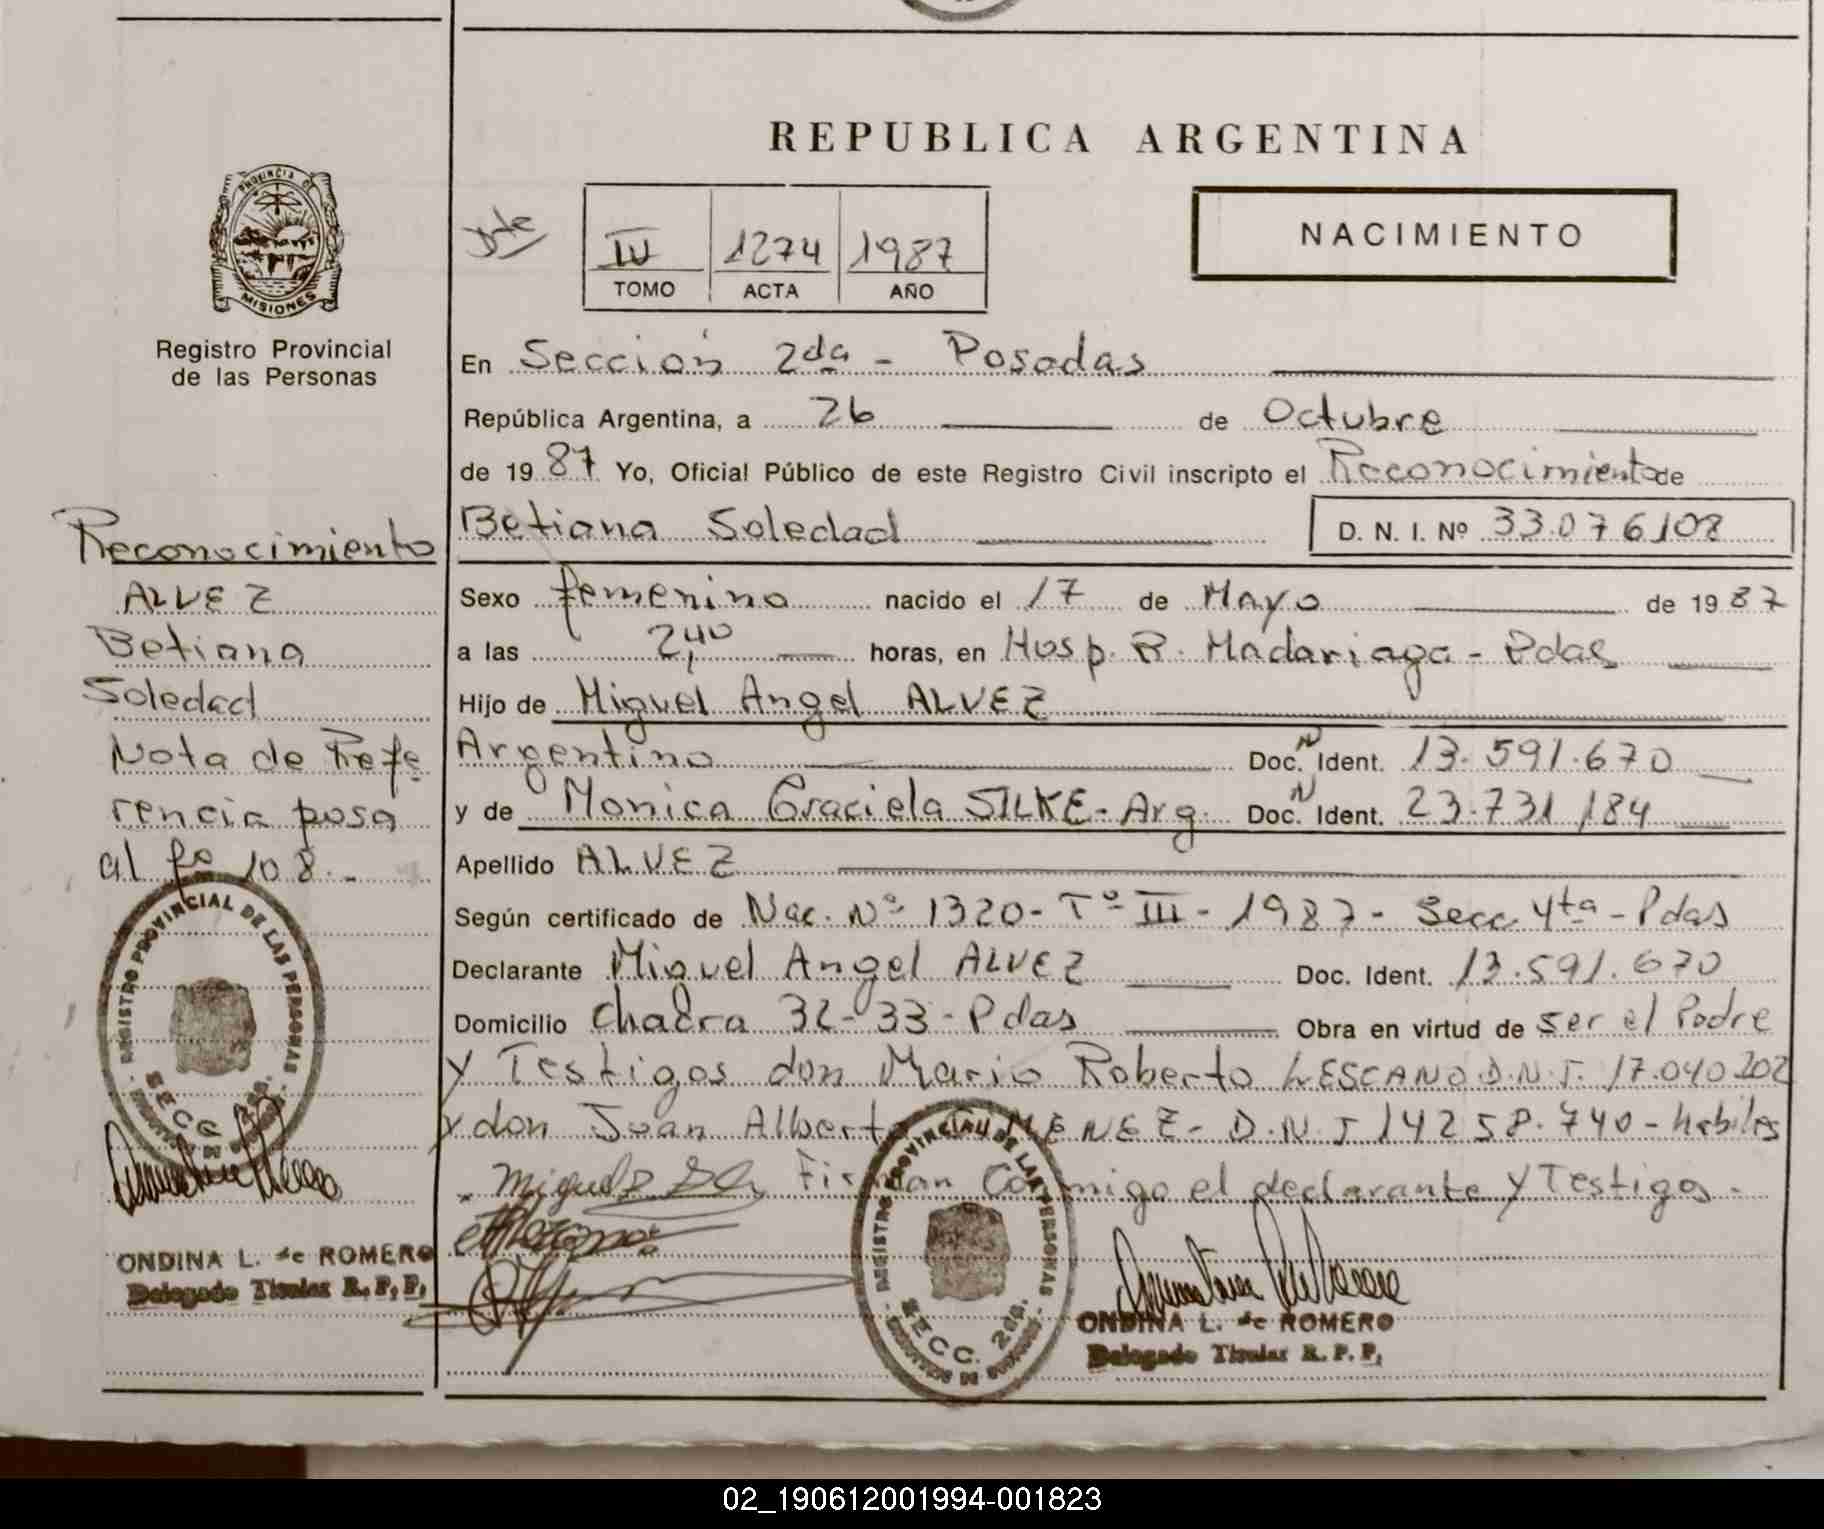 REPUBLICA ARGENTINA
PROVINCIA DE
MISIONES
Registro Provincial
de las Personas
Dte
IV 1274 1987
TOMO ACTA AÑO
NACIMIENTO
En Sección 2da - Posadas
República Argentina, a 26 de Octubre
de 19 87 Yo, Oficial Público de este Registro Civil inscripto el Reconocimiento de
Betiana Soledad D. N. I. Nº 33.076108
Sexo femenino nacido el 17 de Mayo de 19 87
a las 2,40 horas, en Hosp. R. Madariaga - Pdas
Hijo de Miguel Angel ALVEZ
Argentino Doc. N Ident. 13.591.670
y de Monica Graciela SILKE - Arg. Doc. N Ident. 23.731.184
Apellido ALVEZ
Según certificado de Nac. Nº 1320 - Tº III - 1987 - Secc. 4ta - Pdas
Declarante Miguel Angel ALVEZ Doc. Ident. 13.591.670
Domicilio Chacra 32-33 - Pdas Obra en virtud de ser el Padre
y Testigos don Mario Roberto LESCANO D.N.I. 17.040 202
y don Juan Alberto GIMENEZ - D.N.I 14258.740 - habiles
Firman Conmigo el declarante y Testigos.
Reconocimiento
ALVEZ
Betiana
Soledad
Nota de Refe
rencia pasa
al fº 108.-
REGISTRO PROVINCIAL DE LAS PERSONAS
SECC. 2da.
ONDINA L. de ROMERO
Delegado Titular R. P. P.
REGISTRO PROVINCIAL DE LAS PERSONAS
SECC. 2da.
ONDINA L. de ROMERO
Delegado Titular R. P. P.
02_190612001994-001823